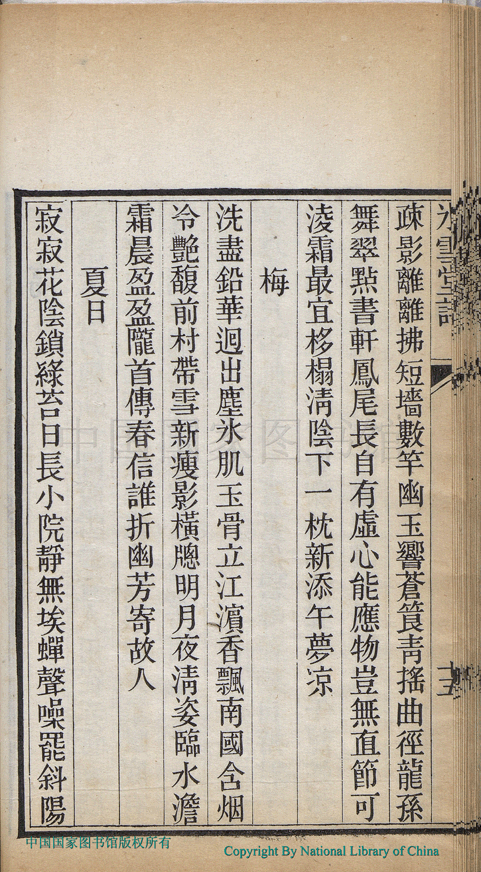 疎影離離拂短墻數竿幽玉響蒼筤靑搖曲徑龍孫
舞翠點書軒鳳尾長自有虛心能應物豈無直節可
淩霜最宜移榻淸陰下一枕新添午夢凉
梅
洗盡鉛華迥出塵氷肌玉骨立江濱香飄南國含烟
冷艷馥前村帶雪新瘦影橫牕明月夜淸姿臨水澹
霜晨盈盈隴首傳春信誰折幽芳寄故人
夏日
寂寂花陰鎖綠苔日長小院靜無埃蟬聲噪罷斜陽
中国国家图书馆
中国国家图书馆版权所有
Copyright By National Library of China